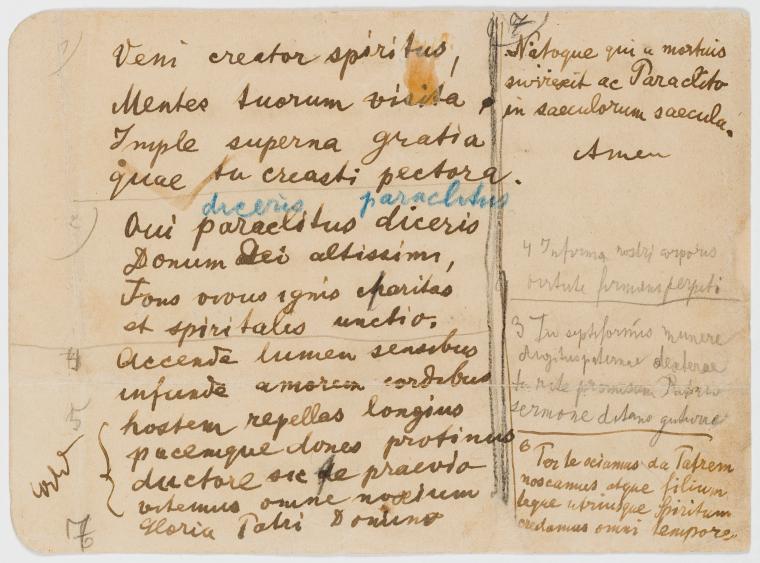 Veni creator spiritus,
Mentes tuorum visita,
Imple superna gratia
quae tu creasti pectora.
diceris paraclitus
Qui paraclitus diceris
Donum Dei altissimi,
Fons vivus ignis charitas
et spiritalis unctio.
Accende lumen sensibus
infunde amorem cordibus
hostem repellas longius
pacemque dones protinus
ductore sic te praevio
vitemus omne noxium
Gloria Patri Domino
7
Natoque qui a mortuis
surrexit ac Paraclito
in saeculorum saecula.
Amen
4 Infirma nostri corporis
virtute firmans perpeti
3 Tu septiformis munere
digitus paternae dexterae
tu rite promissum Patris
sermone ditans guttura
6 Per te sciamus da Patrem
noscamus atque filium
teque utriusque Spiritum
credamus omni tempore
5
67